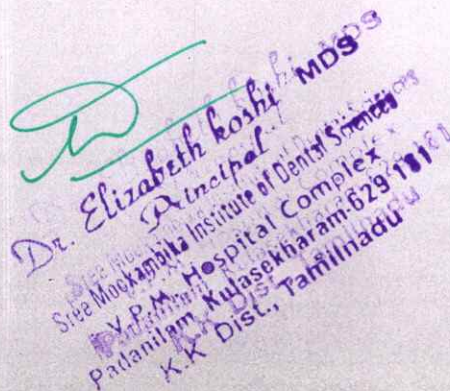 Dr. Elizabeth koshi MDS
Principal
Sree Mookambika Institute of Dental Sciences
V.P.M. Hospital Complex
Padanilam, Kulasekharam-629 161
K.K Dist., Tamilnadu